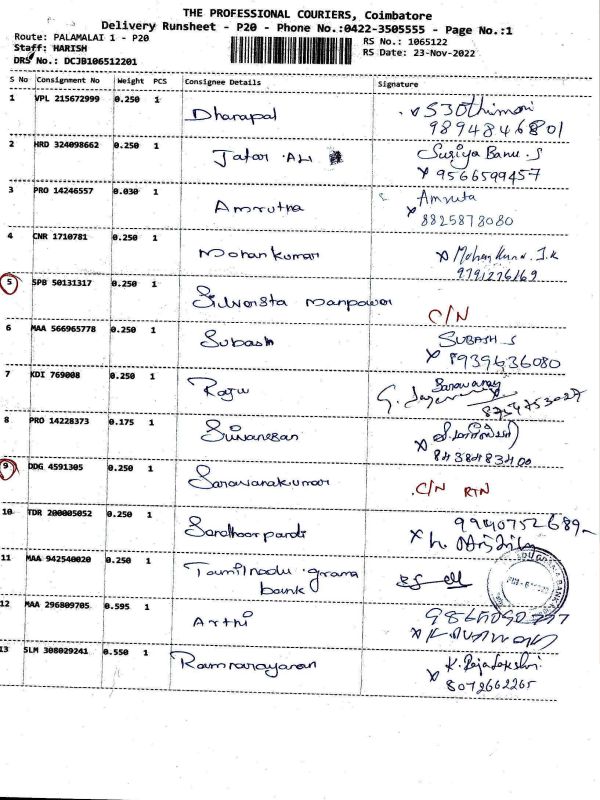 THE PROFESSIONAL COURIERS, Coimbatore
Delivery Runsheet - P20 - Phone No.:0422-3505555 - Page No.:1
Route: PALAMALAI 1 - P20
RS No.: 1065122
Staff: HARISH
RS Date: 23-Nov-2022
DRS No.: DCJB106512201
S No Consignment No Weight PCS Consignee Details Signature
1 VPL 215672999 0.250 1 Dharapal
9894846801
2 HRD 324098662 0.250 1 Jafar Ali Suriya Banu. S
x 9566599457
3 PRO 14246557 0.030 1 Amrutha Amruta
x 8825878080
4 CNR 1710781 0.250 1 Mohan kumar x Mohan Kumar. J.K
9791276169
5 SPB 50131317 0.250 1 Silversta manpower C/N
6 MAA 566965778 0.250 1 Subash SUBASH S
x 8939636080
7 KDI 769008 0.250 1 Raju Saravanan
8754753027
8 PRO 14228373 0.175 1 Sivanesan
x 8438483400
9 DDG 4591305 0.250 1 Saravanakumar C/N RTN
10 TDR 200005052 0.250 1 9940752689
11 MAA 942540020 0.250 1 Tamilnadu grama
bank
12 MAA 296809705 0.595 1 Arthi
13 SLM 308029241 0.550 1 Ramnarayanan K. Rajalakshmi
x 8072662265